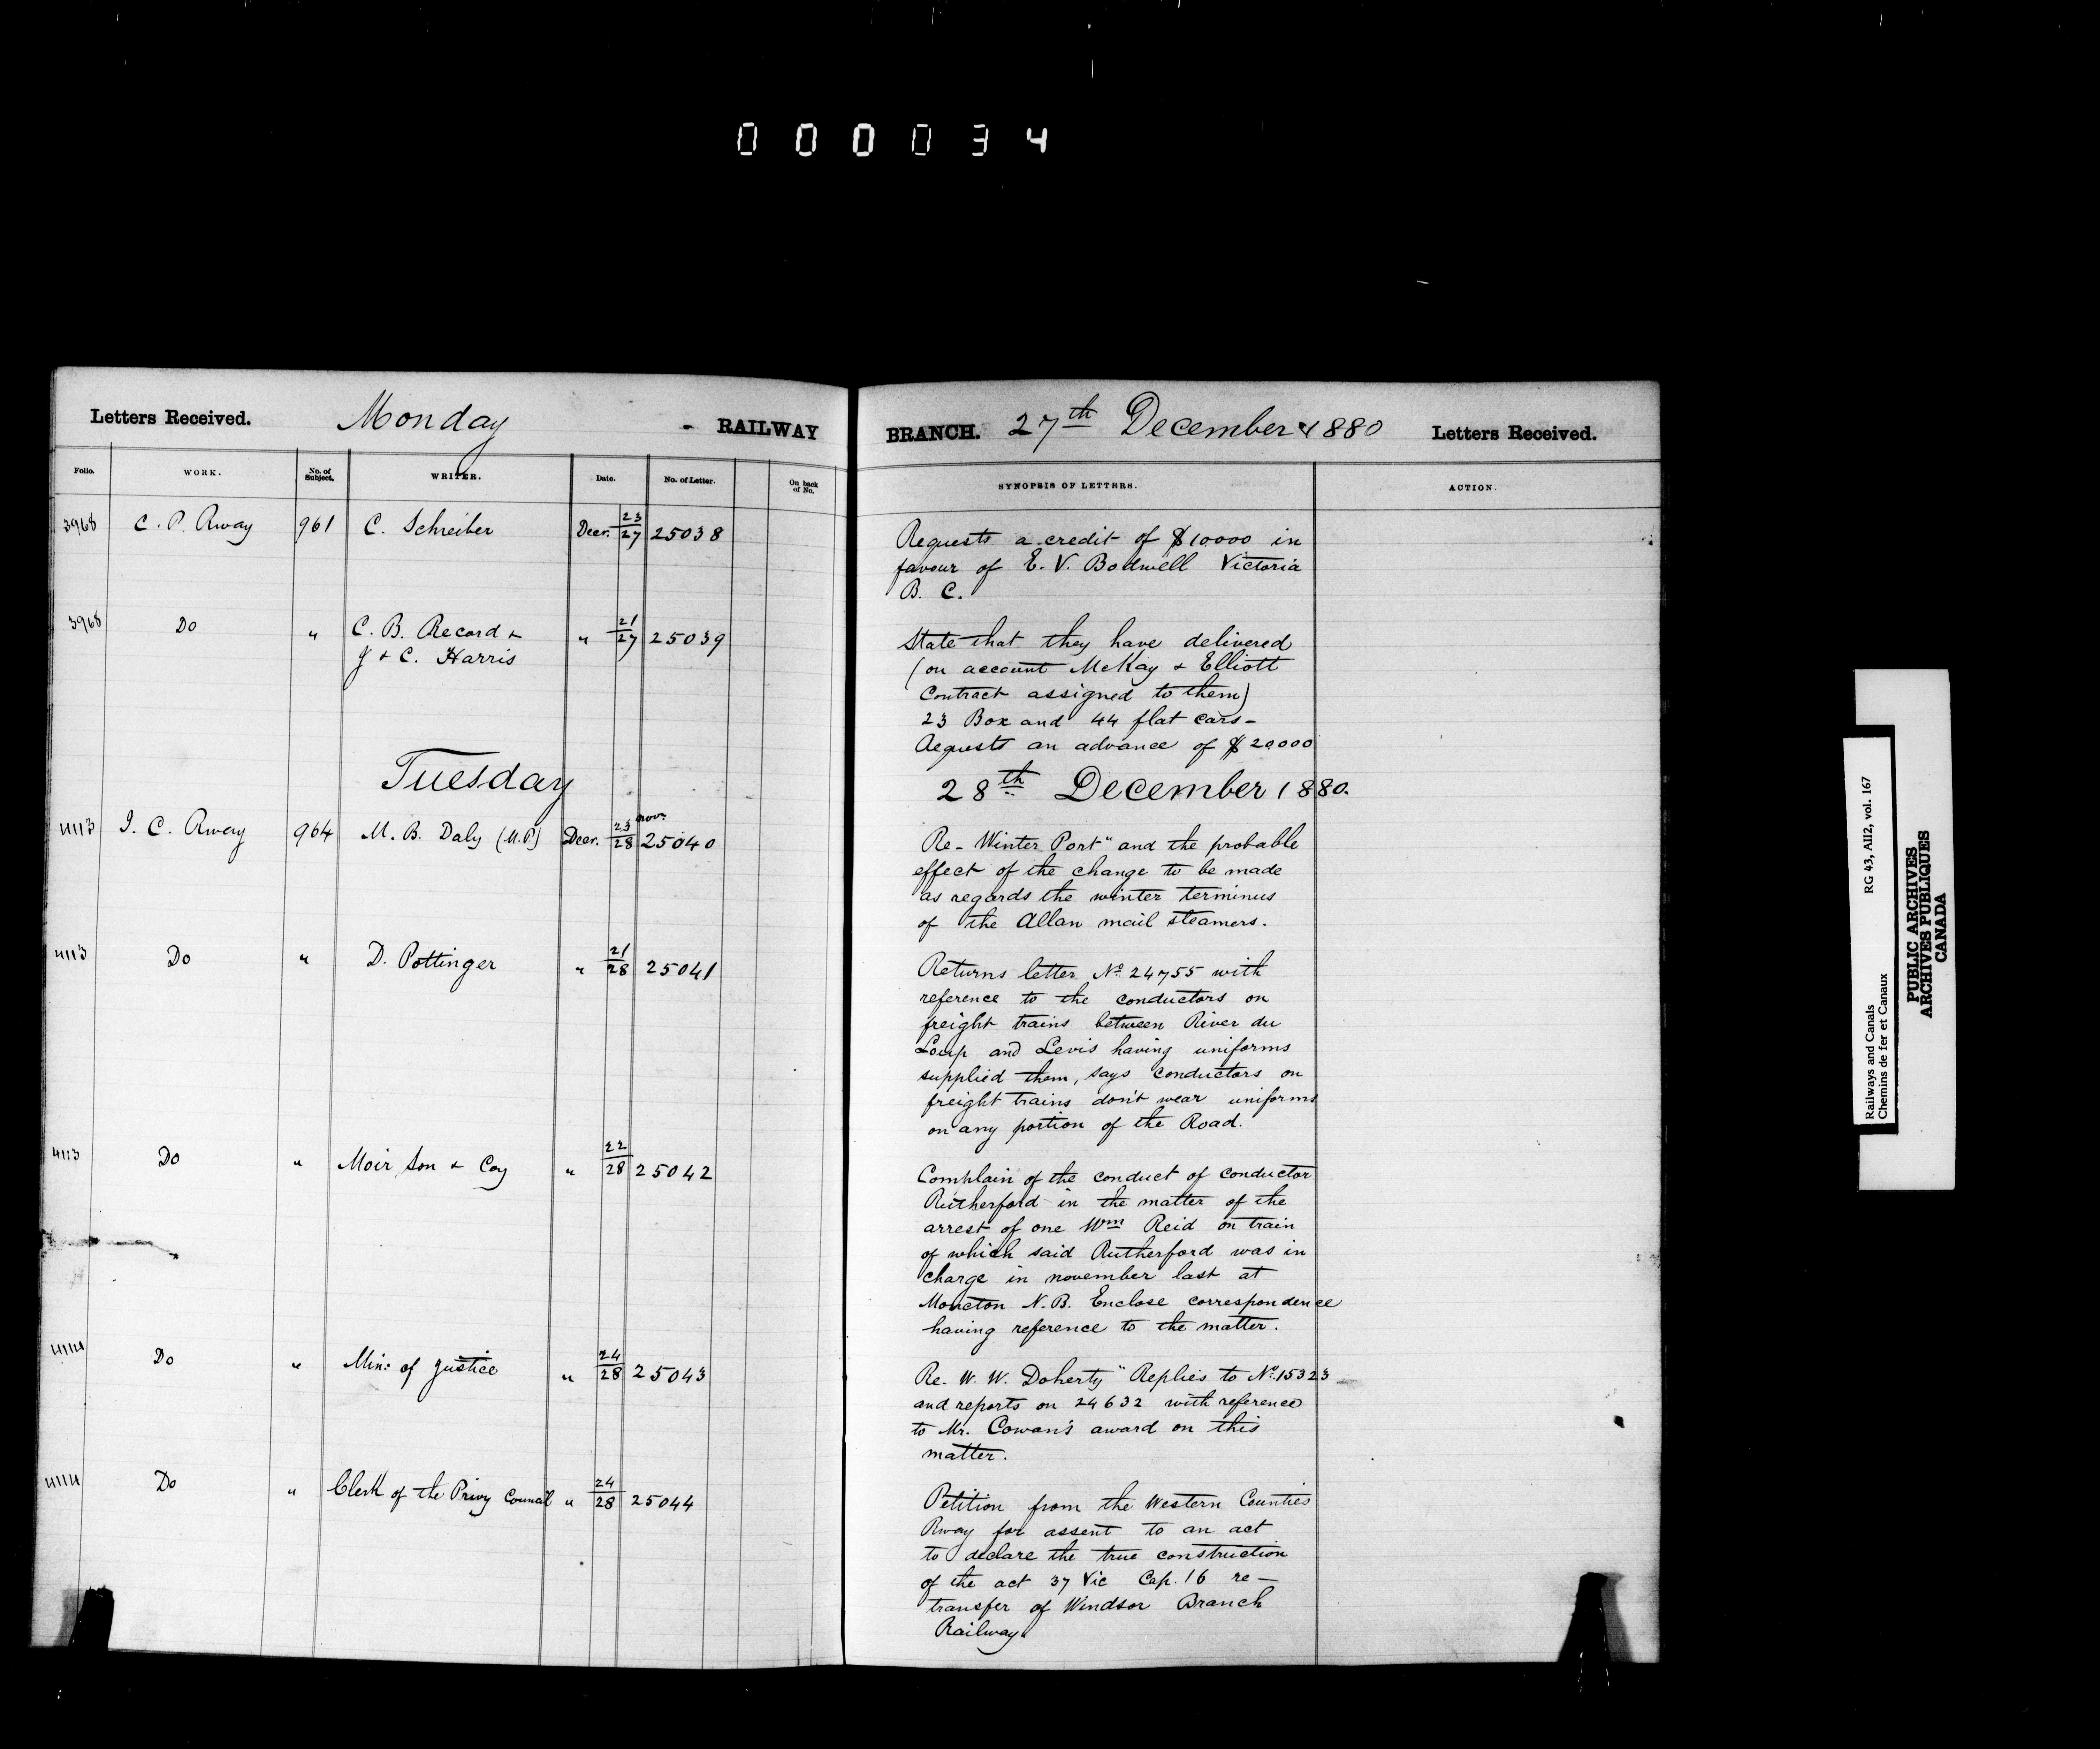 000034
Letters Received. Monday - RAILWAY BRANCH. 27th December 1880 Letters Received.
Folio. WORK. No. of Subject. WRITER. Date. No. of Letter. On back of No. SYNOPSIS OF LETTERS. ACTION.
3968 C. P. Rway 961 C. Schreiber Decr. 23/27 25038
Requests a credit of $10000 in
favour of E. V. Bodwell Victoria
B. C.
3968 Do " C. B. Record &
J & C. Harris " 21/27 25039
State that they have delivered
(on account McKay & Elliott
Contract assigned to them)
23 Box and 44 flat cars -
Requests an advance of $20000
Tuesday 28th December 1880.
4113 I. C. Rway 964 M. B. Daly (M.P.) Decr. 23 Nov./28 25040
Re - Winter Port" and the probable
effect of the change to be made
as regards the winter terminus
of the Allan mail steamers.
4113 Do " D. Pottinger " 21/28 25041
Returns letter No. 24755 with
reference to the conductors on
freight trains between River du
Loup and Levis having uniforms
supplied them, says conductors on
freight trains don't wear uniforms
on any portion of the Road.
4113 Do " Moir Son & Coy " 22/28 25042
Complain of the conduct of conductor
Rutherford in the matter of the
arrest of one Wm Reid on train
of which said Rutherford was in
charge in november last at
Moncton N.B. Enclose correspondence
having reference to the matter.
4114 Do " Min: of Justice " 24/28 25043
Re. W. W. Doherty" Replies to No. 15323
and reports on 24632 with reference
to Mr. Cowan's award on this
matter.
4114 Do " Clerk of the Privy Council " 24/28 25044
Petition from the Western Counties
Rway for assent to an act
to declare the true construction
of the act 37 Vic Cap. 16 re -
transfer of Windsor Branch
Railway.
Railways and Canals RG 43, AII2, vol. 167
Chemins de fer et Canaux
PUBLIC ARCHIVES
ARCHIVES PUBLIQUES
CANADA